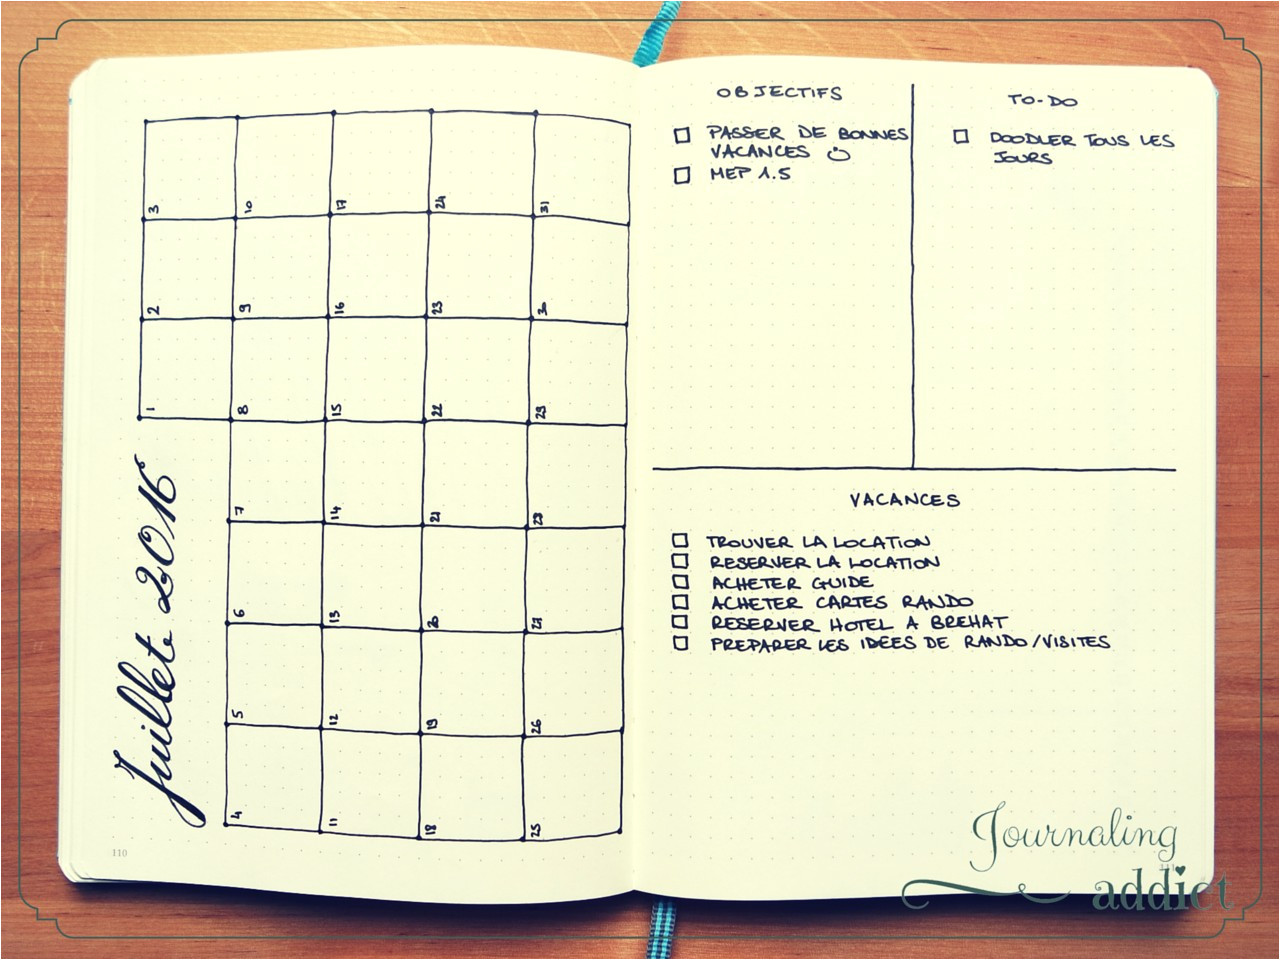 Juillet 2016
1 2 3
4 5 6 7 8 9 10
11 12 13 14 15 16 17
18 19 20 21 22 23 24
25 26 27 28 29 30 31
110
OBJECTIFS
PASSER DE BONNES
VACANCES
MEP 1.5
TO-DO
DOODLER TOUS LES
JOURS
VACANCES
TROUVER LA LOCATION
RESERVER LA LOCATION
ACHETER GUIDE
ACHETER CARTES RANDO
RESERVER HOTEL A BREHAT
PREPARER LES IDEES DE RANDO/VISITES
Journaling
addict